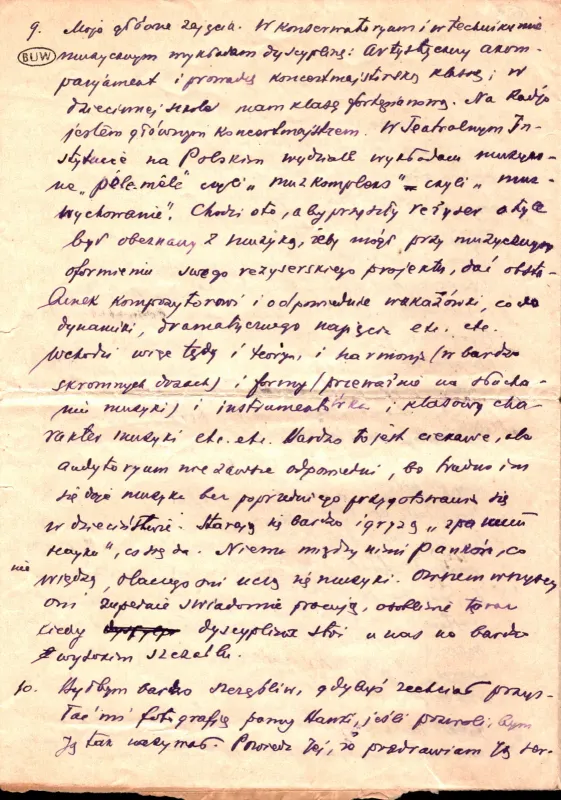 9. Moje główne zajęcia. W konserwatoryum i w technikumie
BUW
muzycznym wykładam dyscyplinę: Artystyczny akom-
panjament i prowadzę koncertmajsterską klasę i w
dziecinnej szkole mam klasę fortepianową. Na Radjo
jestem głównym koncertmajstrem. W Teatralnym In-
stytucie na Polskim wydziale wykładam muzycz-
ne "pêle-mêle" czyli "muzkompleks" – czyli "muz-
wychowanie". Chodzi o to, aby przyszły reżyser o tyle
był obeznany z muzyką, żeby mógł przy muzycznym
oformieniu swego reżyserskiego projektu, dać obsta-
lunek kompozytorowi i odpowiednie wskazówki, co do
dynamiki, dramatycznego napięcia etc. etc.
Wchodzi więc tędy i teorja, i harmonja (w bardzo
skromnych dozach) i formy (przeważnie na słucha-
nie muzyki) i instrumentówka i klasowy cha-
rakter muzyki etc. etc. Bardzo to jest ciekawe, ale
audytoryum nie zawsze odpowiedni, bo trudno im
się daje muzyka bez poprzedniego przygotowania się
w dzieciństwie. Starają się bardzo i gryzą
nauki", co się da. Niema między nimi Panków, co
nie
wiedzą, dlaczego oni uczą się muzyki. Owszem wszyscy
oni zupełnie świadomie pracują, osobliwie teraz
kiedy dyscyplina stoi u nas na bardzo
wysokim szczeblu.
10. Byłbym bardzo szczęśliw, gdybyś zechciał przys-
łać mi fotografię panny Hanki, jeśli pozwoli, bym
Ją tak nazywał. Powiedz Jej, że pozdrawiam Ją ser-